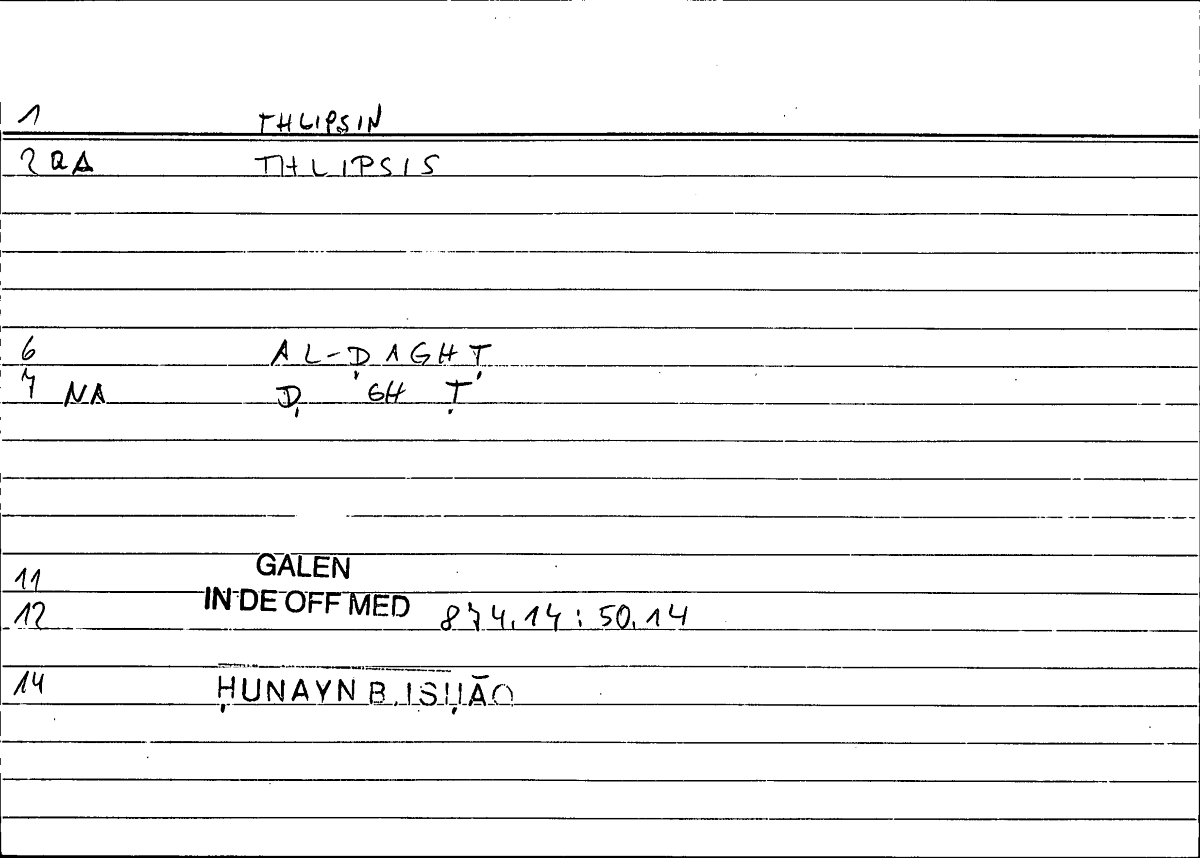 1 THLIPSIN
2 QA THLIPSIS
6 AL-ḌAGHṬ
7 NA Ḍ GH Ṭ
11 GALEN
12 IN DE OFF MED 874.14 : 50.14
14 ḤUNAYN B. ISḤĀQ